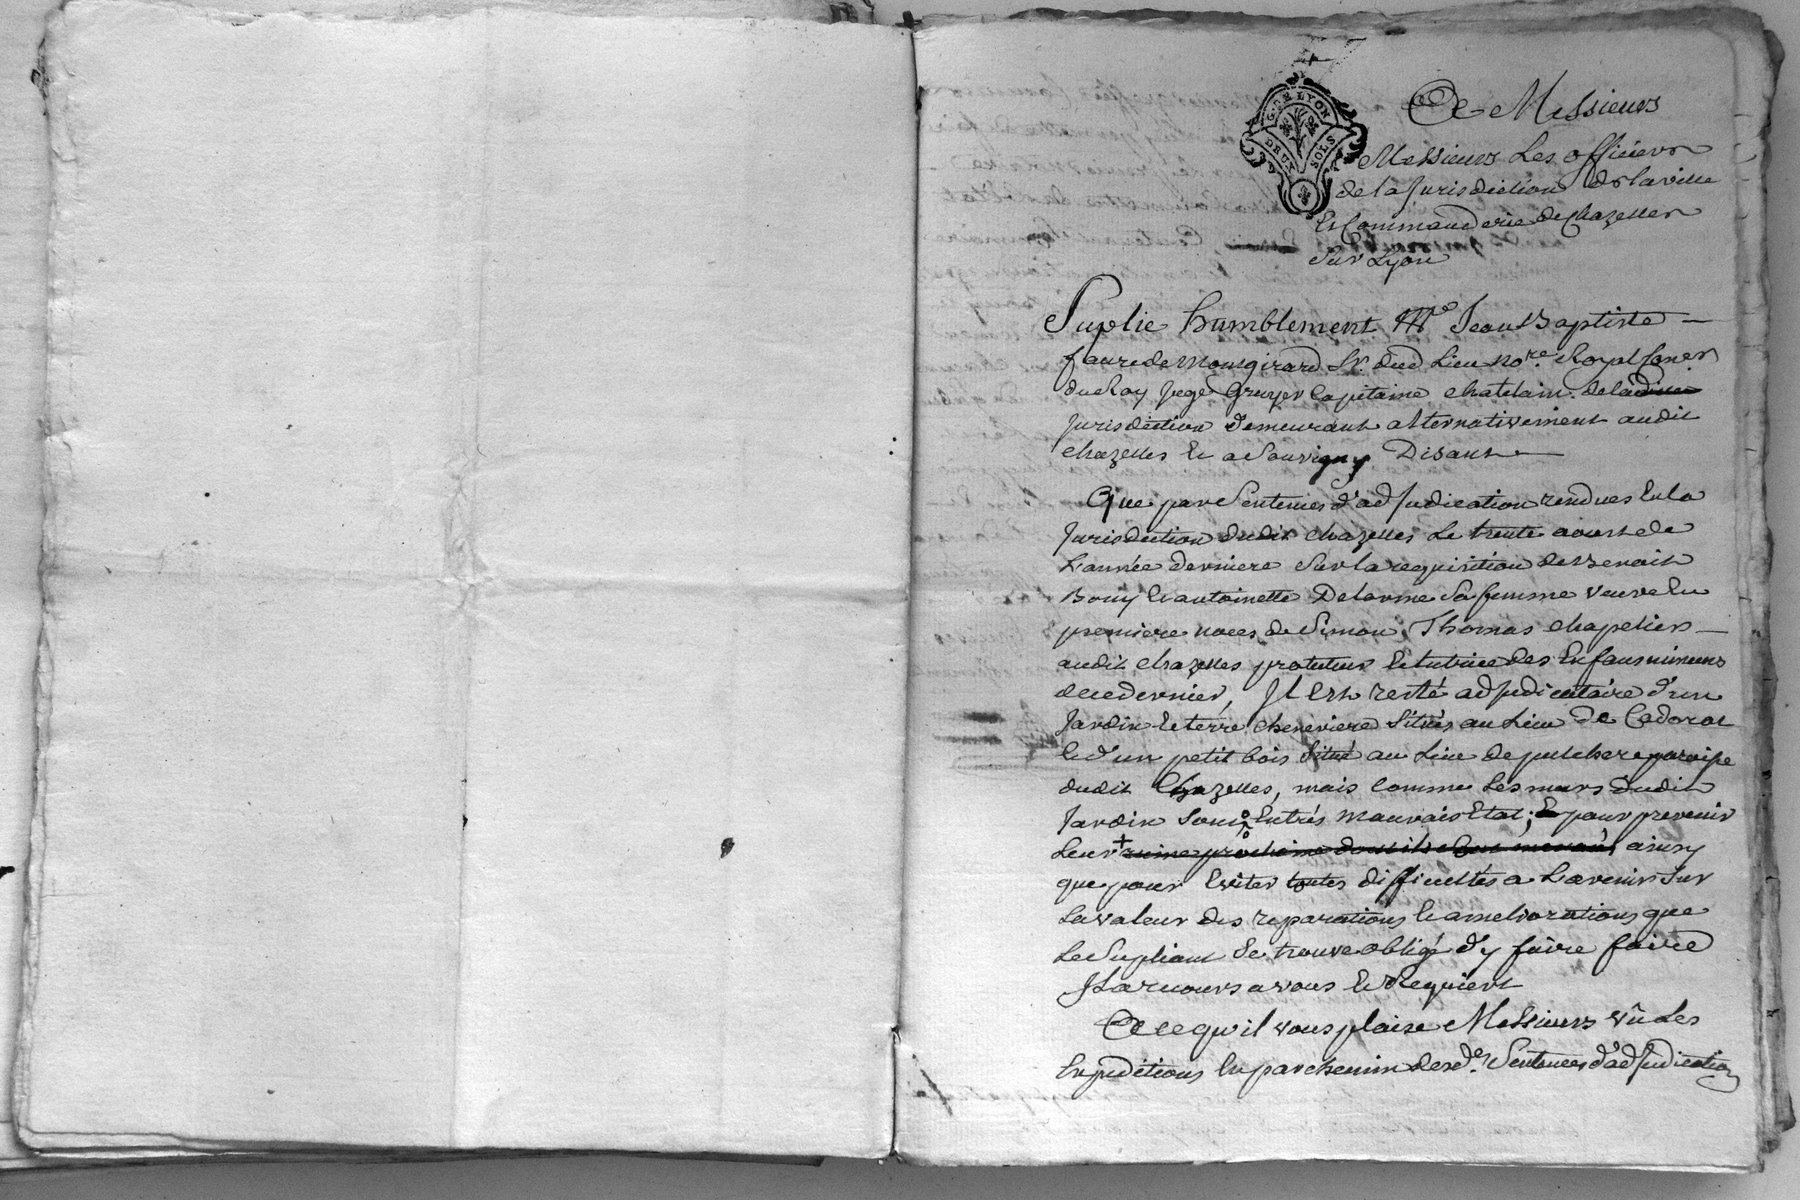 G. DE LYON
DEUX SOLS
A Messieurs
Messieurs Les officiers
de la Jurisdiction de la ville
Et Commanderie de Chazelles
Sur Lyon
Suplie humblement Me Jean Baptiste
faure de Montgirard Sr. dud Lieu nore. Royal Coner
du Roy Juge Gruyer Capitaine chatelain de ladite
Jurisdiction demeurant alternativement audit
chazelles Et a Souvigny Disant
Que par Sentences d'adjudication rendues En la
Jurisdiction dudit chazelles Le trente aoust de
L'année derniere Sur la requisition de Benoit
Bouy Et antoinette Delorme Sa femme veuve En
premiere noces de Simon Thomas chapelier
audit chazelles protuteur Et tutrice des Enfans mineurs
de ce dernier, Il Est resté adjudicataire d'un
Jardin Et terre cheneviere Situés au Lieu de Cadorat
Et d'un petit bois Situé au Lieu de puichere paroisse
dudit Chazelles, mais comme Les murs dudit
Jardin Sont En très mauvais Etat; Et pour prevenir
Leur ruine prochaine dont ils Sont menacés, ainsy
que pour Eviter toutes difficultés a L'avenir Sur
La valeur des reparations Et ameliorations que
Le Supliant Se trouve obligé d'y faire faire
Il a recours a vous Et Requiert
A ce qu'il vous plaise Messieurs vû Les
Expeditions En parchemin desd. Sentences d'adjudication